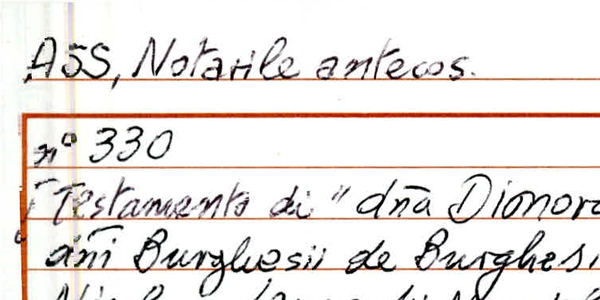 ASS, Notarile antecos.
n° 330
Testamento di "dña Dionora
dñi Burghesii de Burghesi